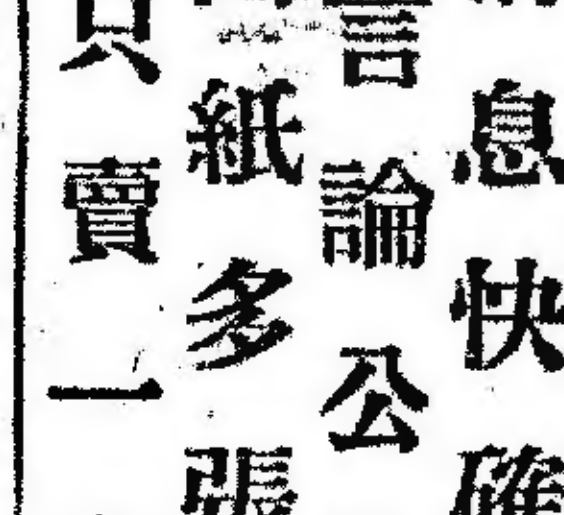 息快確
言論公
紙多張
只賣一